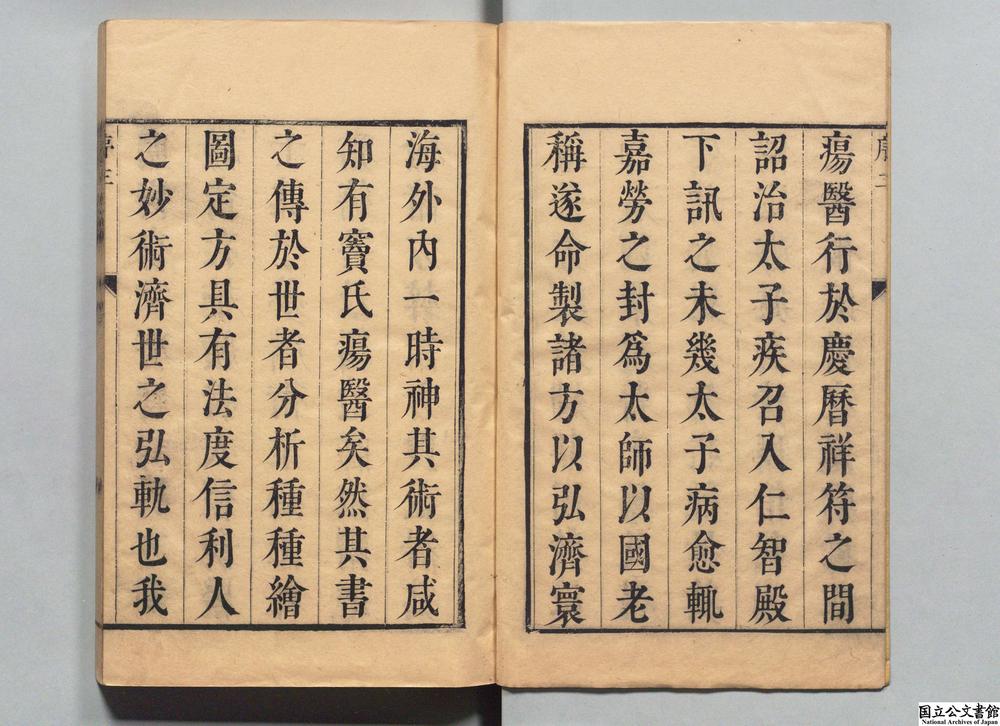 瘍醫行於慶曆祥符之間
詔治太子疾召入仁智殿
下訊之未幾太子病愈輒
嘉勞之封爲太師以國老
稱遂命製諸方以弘濟寰
海外內一時神其術者咸
知有竇氏瘍醫矣然其書
之傳於世者分析種種繪
圖定方具有法度信利人
之妙術濟世之弘軌也我
国立公文書館
National Archives of Japan